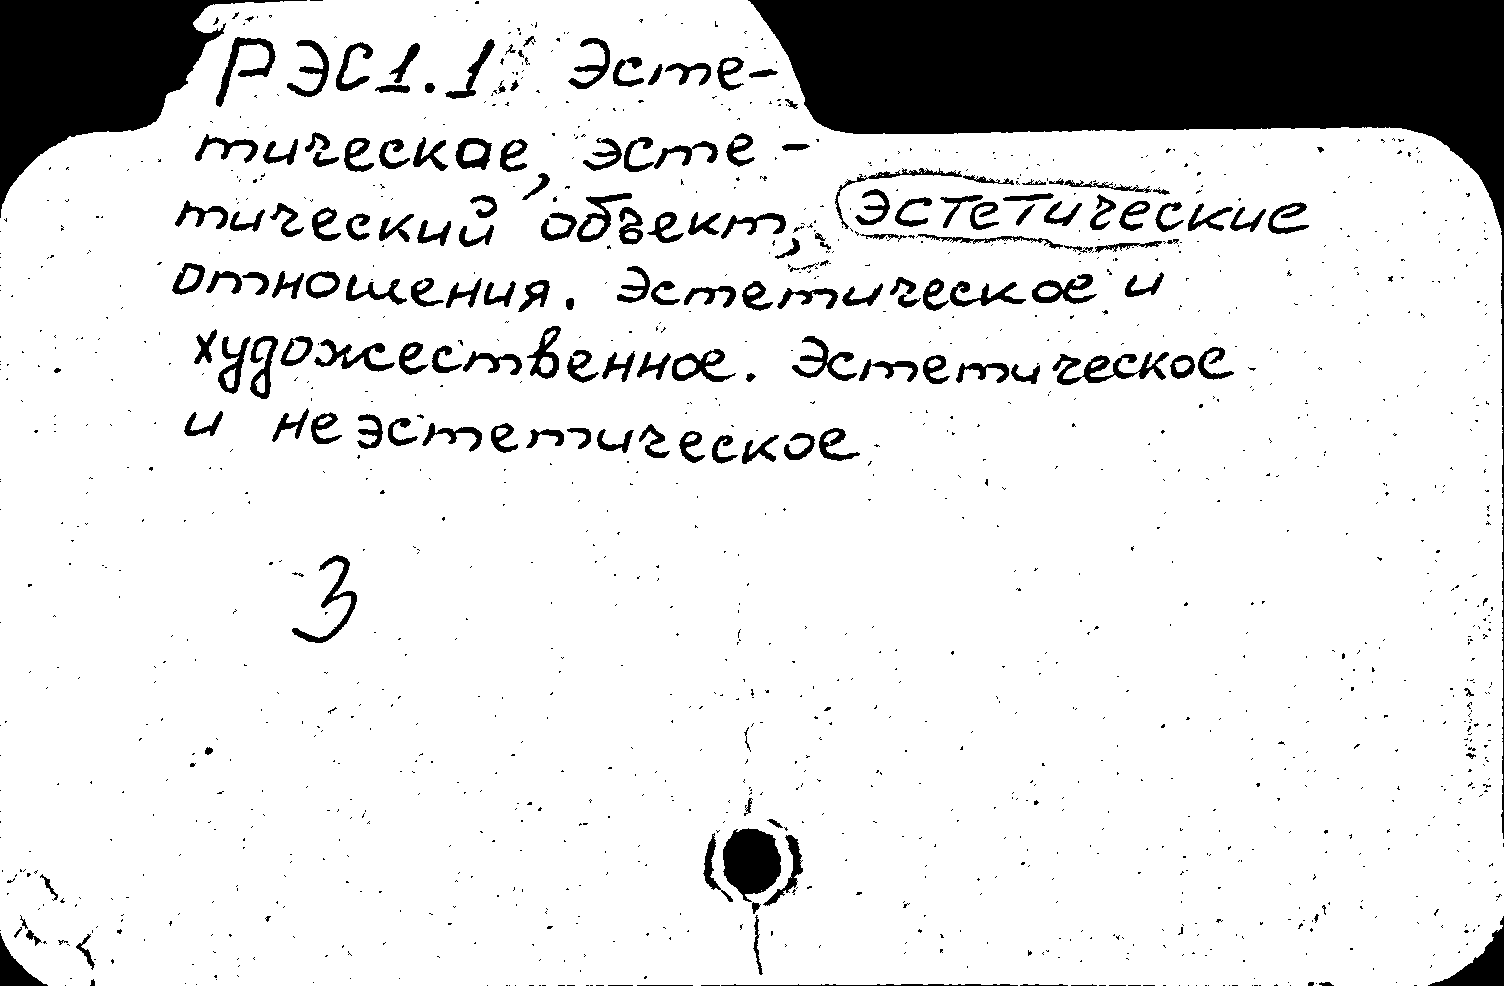 РЭС1.1 Эсте-
тическае, эсте-
тический объект, эстетические
отношения. Эстетическое и
художественное. Эстетическое
и неэстетическое
3